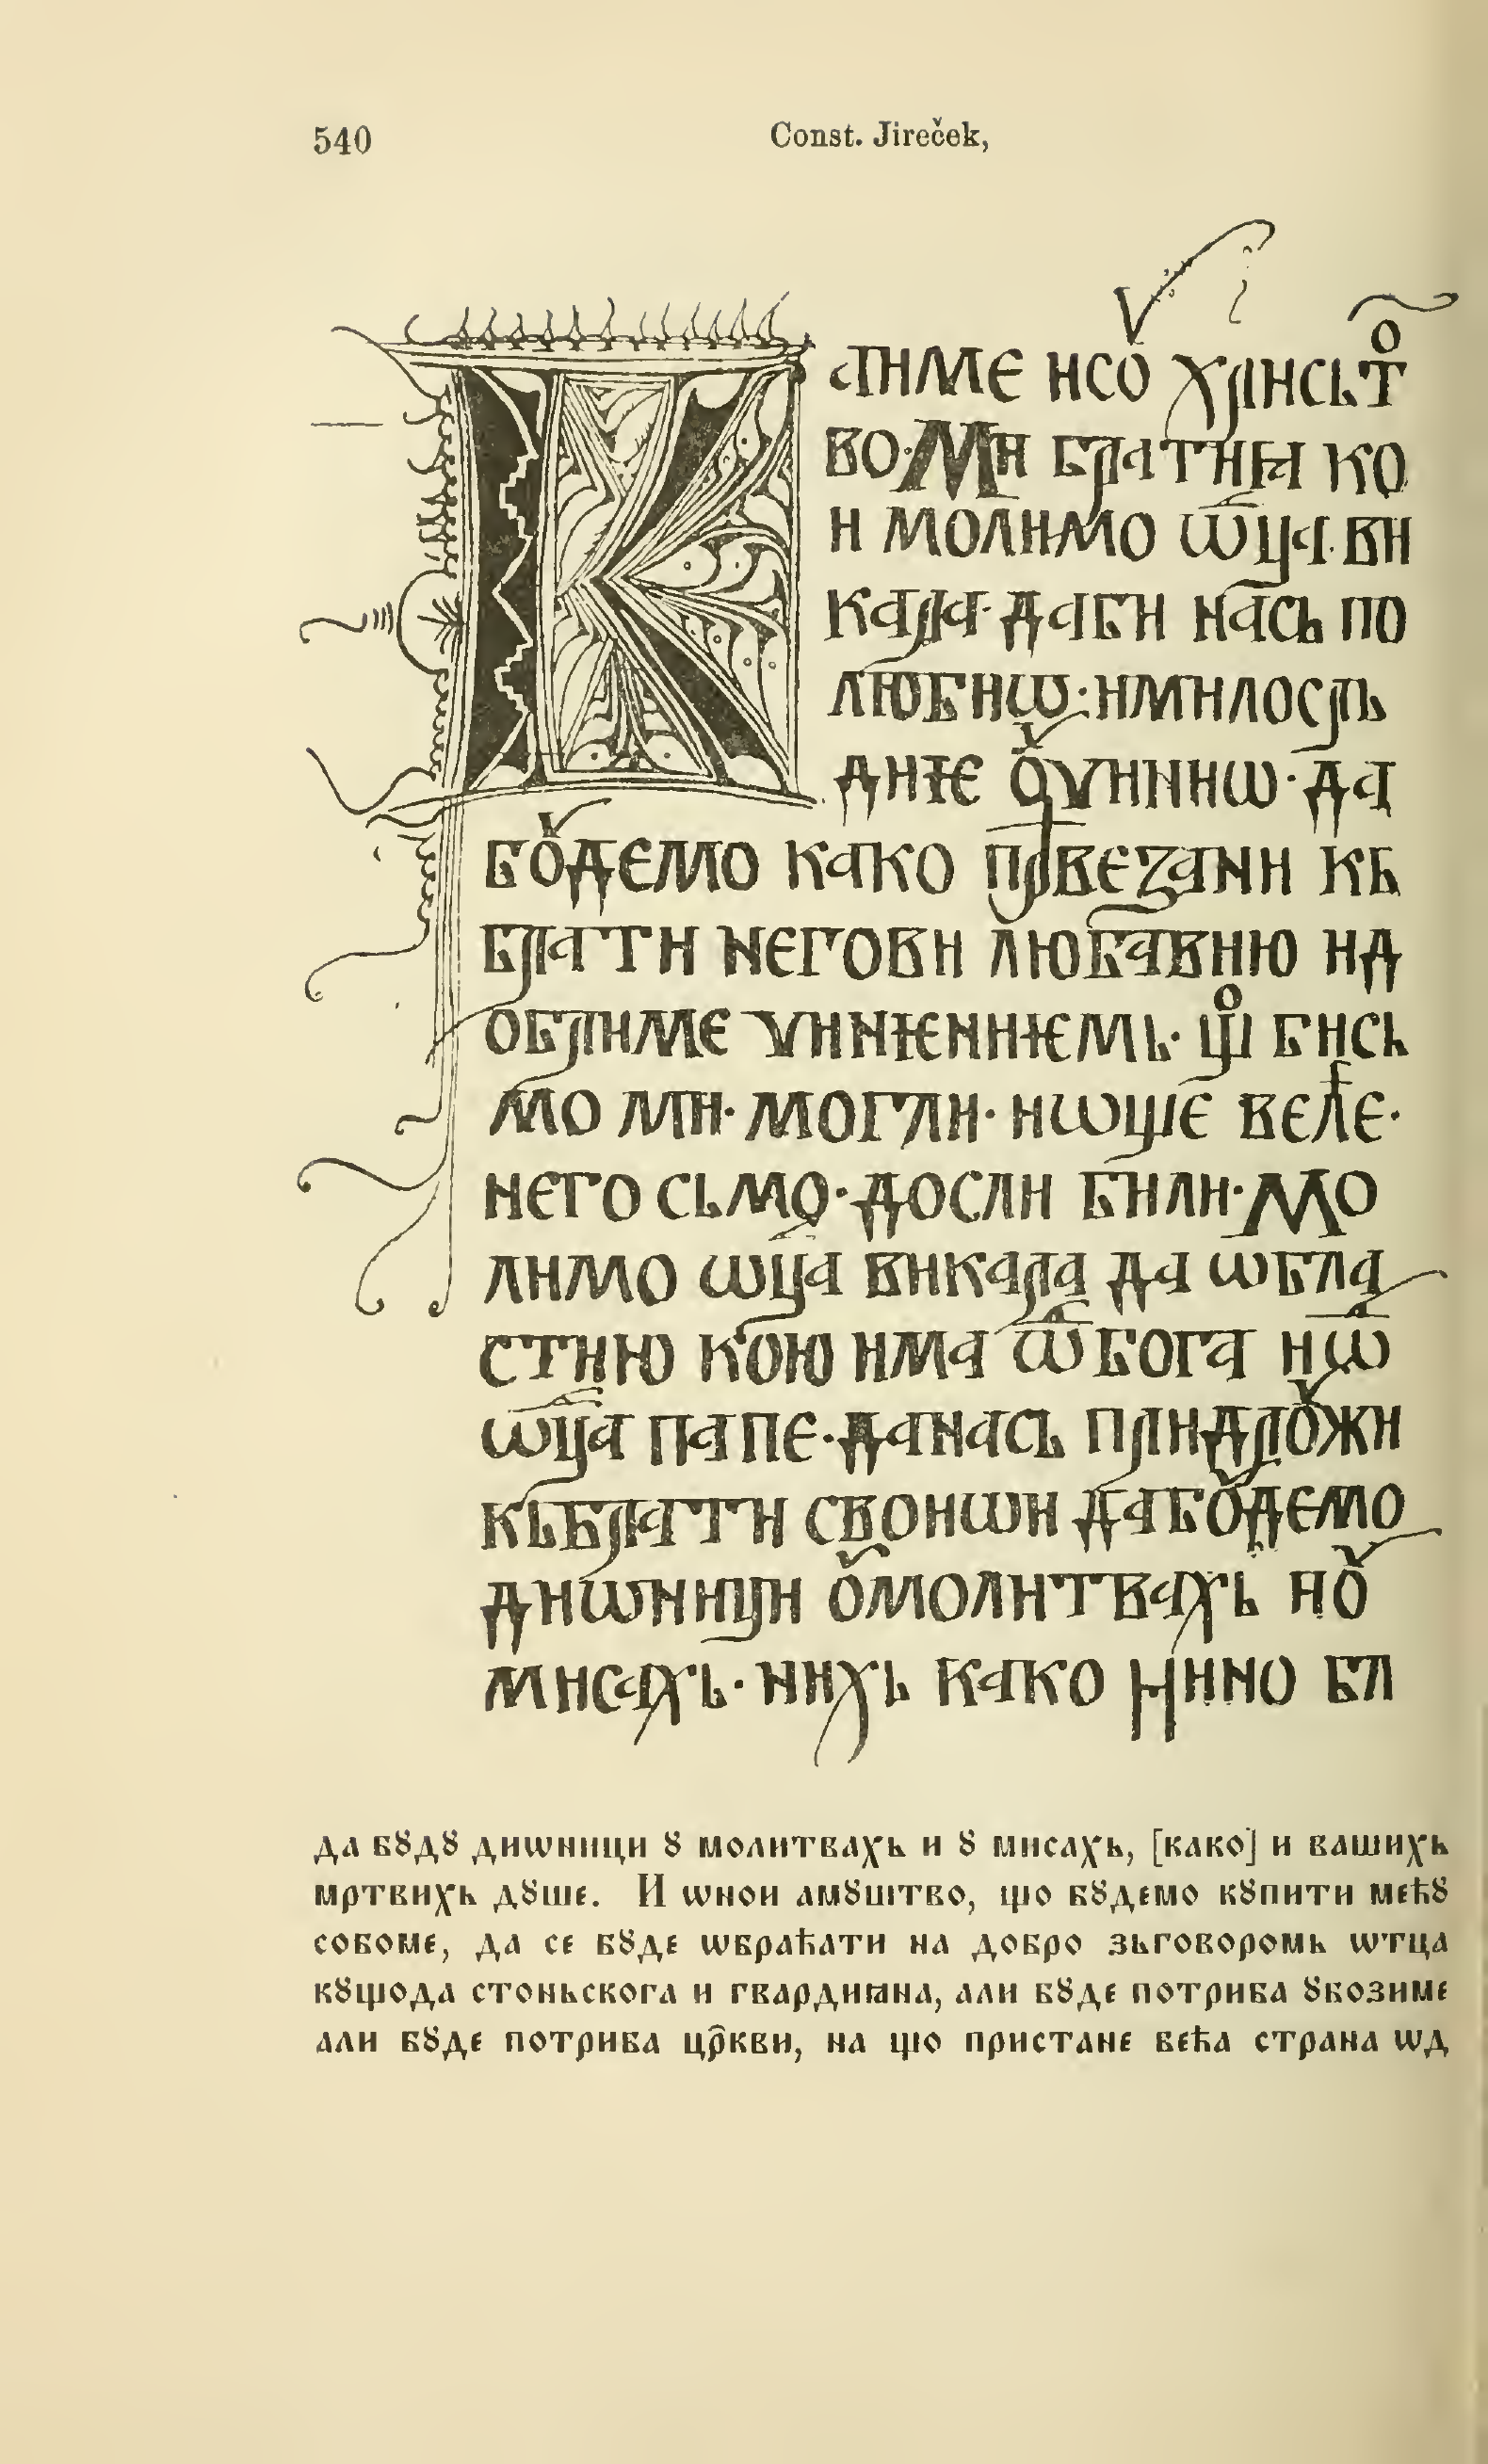 540 Const. Jireček,
К атиме исꙋ хрисьто
во· Ми братиꙗ ко
и молимо ѿца· ви
кара· даби нась по
любиѡ· имилосрь
диѥ ꙋчиниѡ· да
бꙋдемо како првезани кь
брати негови любавию ид
обриме чинѥниѥмь· що бись
мо ми· могли· иѡще веће·
него сьмо· досли били· Мо
лимо ѡца викара да ѡбла
стию кою има ѿ бога иѿ
ѡца папе· данась придрꙋжи
кьбрати своиѡи дабꙋдемо
диѡници ꙋмолитвахь иꙋ
мисахь· нихь како бр
да бꙋдꙋ диѡници ꙋ молитвахь и ꙋ мисахь, [како] и вашихь
мртвихь дꙋше. И ѡнои амꙋштво, що бꙋдемо кꙋпити меѣꙋ
собоме, да се бꙋде ѡбраћати на добро зьговоромь ѡтца
кꙋщода стоньскога и гвардиꙗна, али бꙋде потриба ꙋбозиме
али бꙋде потриба цр̑кви, на що пристане већа страна ѡд